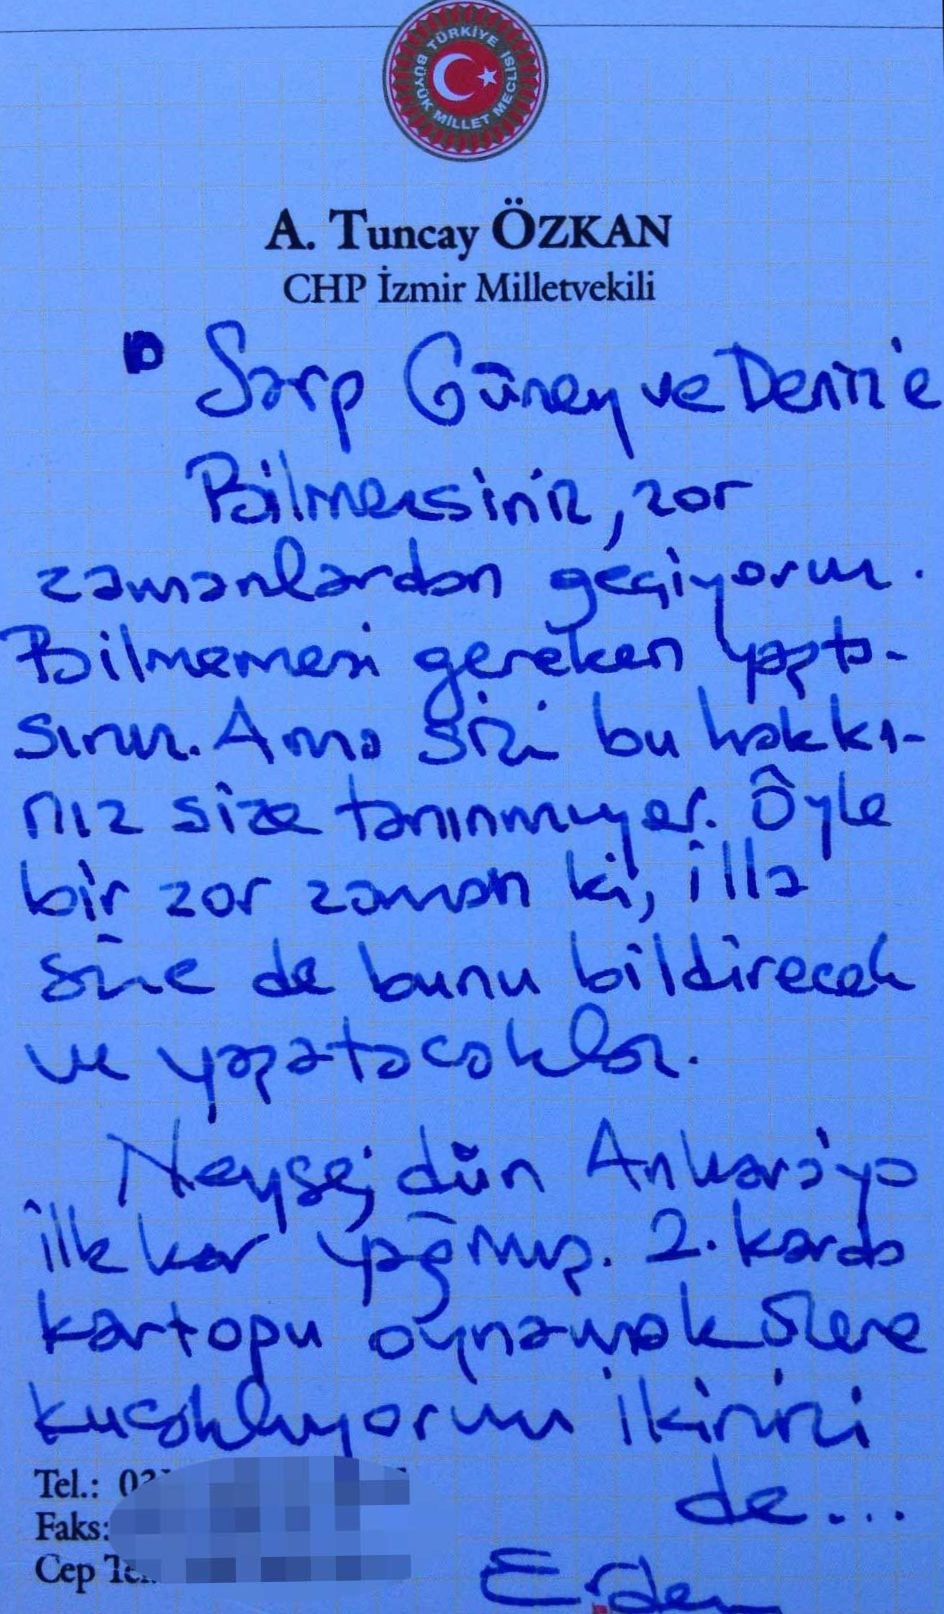 TÜRKİYE BÜYÜK MİLLET MECLİSİ
A. Tuncay ÖZKAN
CHP İzmir Milletvekili
Sarp Güney ve Deniz'e
Bilmezsiniz, zor
zamanlardan geçiyoruz.
Bilmemesi gereken yaşta-
sınız. Ama sizi bu hakkı-
nız size tanınmıyor. Öyle
bir zor zaman ki, illa
size de bunu bildirecek
ve yaşatacaklar.
Neyse, dün Ankara'ya
ilk kar yağmış. 2. karda
kartopu oynamak üzere
kucaklıyorum ikinizi
de...
Tel.: 03
Faks:
Cep Tel.
Erdem